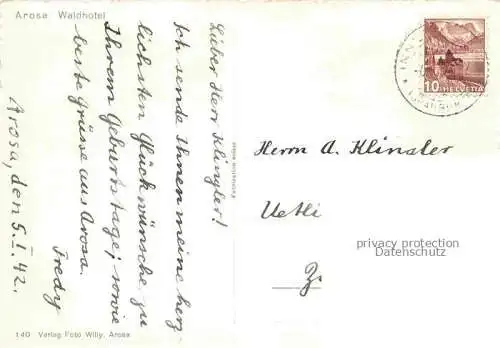 Arosa Waldhotel
Arosa, den 5. I. 42.
Lieber Herr Klingler!
Ich sende Ihnen meine herz-
lichsten Glückwünsche zu
Ihrem Geburtstage; sowie
beste Grüsse aus Arosa.
Fredy
140 Verlag Foto Willy, Arosa
10 HELVETIA
Herrn A. Klingler
Uetli
privacy protection
Datenschutz